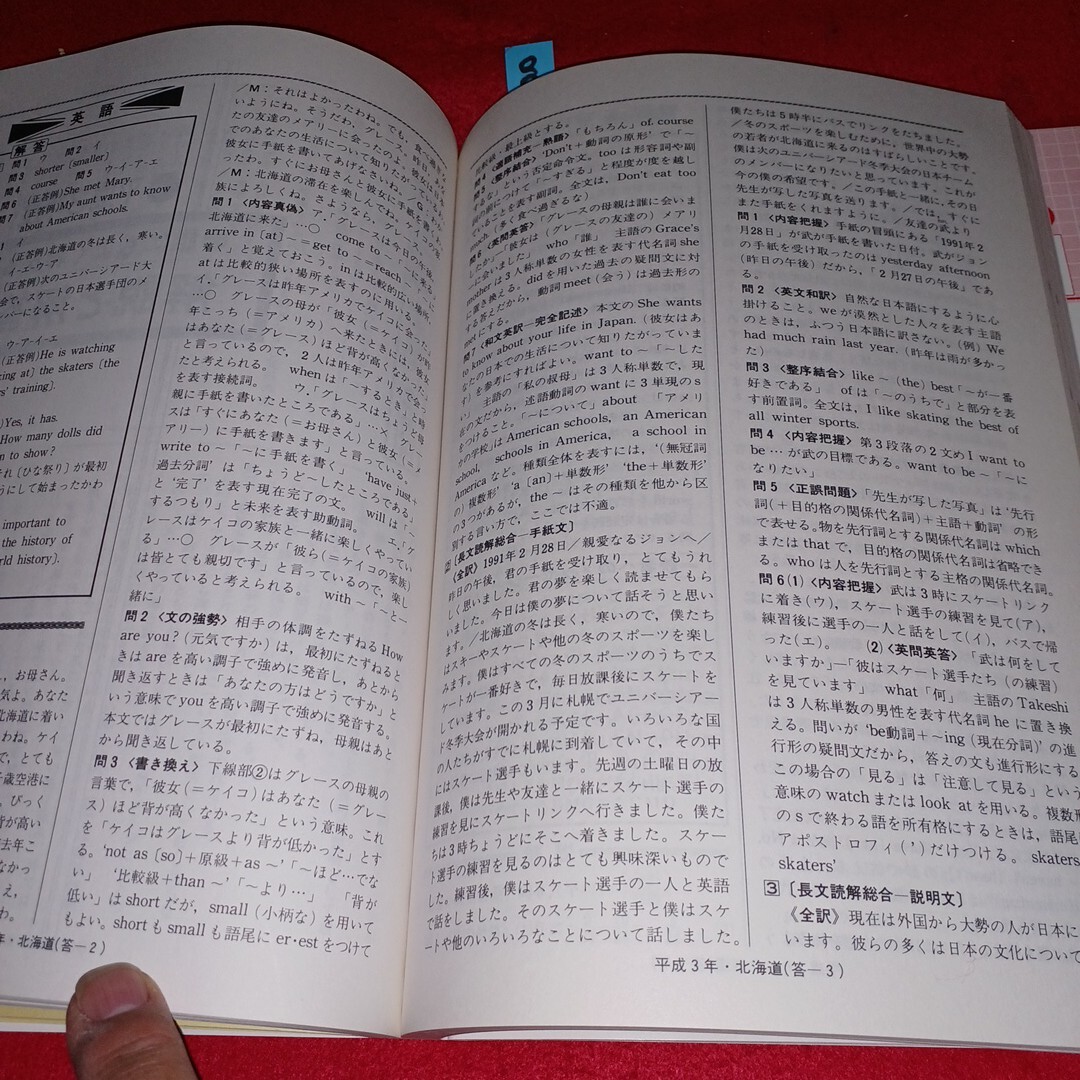 英語
解答
問1 ウ 問2 イ
問3 shorter [smaller]
問4 course 問5 ウ-イ-ア-エ
問6 (正答例)She met Mary.
問7 (正答例)My aunt wants to know
about American schools.
イ
(正答例)北海道の冬は長く，寒い。
イ-エ-ウ-ア
(正答例)次のユニバーシアード大
会で，スケートの日本選手団のメ
ンバーになること。
ウ-ア-イ-エ
(正答例)He is watching
king at] the skaters [the
ers' training].
)Yes, it has.
How many dolls did
n to show?
それ[ひな祭り]が最初
うにして始まったかわ
important to
the history of
rld history].
，お母さん。
気よ。あなた
海道に着い
わね。ケイ
で，とても
歳空港に
，びっく
背が高い
去年こ
なかっ
え，
わ。
年・北海道(答―2)
／M：それはよかったわね。でも，食べ過ぎな
いようにね。そうだわ，グレース。昨日あな
たの友達のメアリーに会ったのよ。彼女は日本
でのあなたの生活について知りたがっているわ。
彼女に手紙を書いてあげなさいね。／G：わかっ
たわ。すぐにお母さんと彼女に手紙を書くわ。
／M：北海道の滞在を楽しんでね。ケイコの家
族によろしくね。さようなら，グレース。
問1〈内容真偽〉ア，「グレースは今日の午後，
北海道に来た」…○ come to ～＝
arrive in [at] ～＝get to ～＝reach ～「～に
着く」と覚えておこう。inは比較的広い場所，
atは比較的狭い場所を表すのに用いる。
イ，「グレースは昨年アメリカでケイコに会った」
…○ グレースの母が「彼女(＝ケイコ)が昨
年こっち(＝アメリカ)へ来たときには，彼女
はあなた(＝グレース)ほど背が高くなかった」
と言っているので，2人は昨年アメリカで会った
と考えられる。 whenは「～するとき」と時
を表す接続詞。 ウ，「グレースはちょうど母
親に手紙を書いたところである」…× グレー
スは「すぐにあなた(＝お母さん)と彼女(＝メ
アリー)に手紙を書きます」と言っている。
write to ～「～に手紙を書く」 'have just＋
過去分詞'は「ちょうど～したところである」
と'完了'を表す現在完了の文。 will は「～
するつもり」と未来を表す助動詞。 エ，「グ
レースはケイコの家族と一緒に楽しくやってい
る」…○ グレースが「彼ら(＝ケイコの家族)
は皆とても親切です」と言っているので，楽し
くやっていると考えられる。 with ～「～と一
緒に」
問2〈文の強勢〉相手の体調をたずねるHow
are you?(元気ですか)は，最初にたずねると
きはareを高い調子で強めに発音し，あとから
聞き返すときは「あなたの方はどうですか」と
いう意味でyouを高い調子で強めに発音する。
本文ではグレースが最初にたずね，母親はあと
から聞き返している。
問3〈書き換え〉下線部②はグレースの母親の
言葉で，「彼女(＝ケイコ)はあなた(＝グレー
ス)ほど背が高くなかった」という意味。これ
を「ケイコはグレースより背が低かった」とす
る。'not as [so]＋原級＋as ～'「～ほど…でな
い」 '比較級＋than ～'「～より…」 「背が
低い」はshortだが，small(小柄な)を用いて
もよい。shortもsmallも語尾にer･estをつけて
比較級・最上級とする。
問4〈適語補充―熟語〉「もちろん」of course
問5〈整序結合〉'Don't＋動詞の原形'で「～
するな」という否定命令文。tooは形容詞や副
詞の前に…つけて「～すぎる」と程度が度を越し
ていることを表す副詞。全文は，Don't eat too
much.(多く食べ過ぎるな)
問6〈英問英答〉「グレースの母親は誰に会いま
したか」―「彼女は(グレースの友達の)メアリ
ーに会いました」 who「誰」 主語のGrace's
motherは3人称単数の女性を表す代名詞she
に置き換える。didを用いた過去の疑問文に対
する答えだから，動詞meet(会う)は過去形の
metにする。
問7〈和文英訳―完全記述〉本文のShe wants
to know about your life in Japan.(彼女はあ
なたの日本での生活について知りたがっていま
す)を参考にすればよい。want to ～「～した
い」 主語の「私の叔母」は3人称単数で，現
在の文だから，述語動詞のwantに3単現のs
をつけること。「～について」about 「アメリ
カの学校」はAmerican schools, an American
school, schools in America, a school in
Americaなど。種類全体を表すには，'(無冠詞
の)複数形' 'a [an]＋単数形' 'the＋単数形'
の3つがあるが，the ～はその種類を他から区
別する言い方で，ここでは不適。
2〔長文読解総合―手紙文〕
《全訳》1991年2月28日／親愛なるジョンへ／
昨日の午後，君の手紙を受け取り，とてもうれ
しく思いました。君の夢を楽しく読ませてもら
いました。今日は僕の夢について話そうと思い
ます。／北海道の冬は長く，寒いので，僕たち
はスキーやスケートや他の冬のスポーツを楽し
みます。僕はすべての冬のスポーツのうちでス
ケートが一番好きで，毎日放課後にスケートを
しています。この3月に札幌でユニバーシアー
ド冬季大会が開かれる予定です。いろいろな国
の人たちがすでに札幌に到着していて，その中
にはスケート選手もいます。先週の土曜日の放
課後，僕は先生や友達と一緒にスケート選手の
練習を見にスケートリンクへ行きました。僕た
ちは3時ちょうどにそこへ着きました。スケー
ト選手の練習を見るのはとても興味深いもので
した。練習後，僕はスケート選手の一人と英語
で話をしました。そのスケート選手と僕はスケ
ートや他のいろいろなことについて話しました。
僕たちは5時半にバスでリンクをたちました。
／冬のスポーツを楽しむために，世界中の大勢
の若者が北海道に来るのはすばらしいことです。
僕は次のユニバーシアード冬季大会の日本チーム
のメンバーになりたいと思っています。これが
今の僕の希望です。／この手紙と一緒に，その日
先生が写した写真を送ります。／では，すぐに
また手紙をくれますように。／友達の武より
問1〈内容把握〉手紙の冒頭にある「1991年2
月28日」が武が手紙を書いた日付。武がジョン
の手紙を受け取ったのはyesterday afternoon
(昨日の午後)だから，「2月27日の午後」であ
る。
問2〈英文和訳〉自然な日本語にするように心
掛けること。weが漠然とした人々を表す主語
のときは，ふつう日本語に訳さない。(例) We
had much rain last year.(昨年は雨が多かっ
た)
問3〈整序結合〉like ～ (the) best「～が一番
好きである」 ofは「～のうちで」と部分を表
す前置詞。全文は，I like skating the best of
all winter sports.
問4〈内容把握〉第3段落の2文めI want to
be … が武の目標である。want to be ～「～に
なりたい」
問5〈正誤問題〉「先生が写した写真」は'先行
詞(＋目的格の関係代名詞)＋主語＋動詞'の形
で表せる。物を先行詞とする関係代名詞はwhich
またはthatで，目的格の関係代名詞は省略でき
る。whoは人を先行詞とする主格の関係代名詞。
問6(1)〈内容把握〉武は3時にスケートリンク
に着き(ウ)，スケート選手の練習を見て(ア)，
練習後に選手の一人と話をして(イ)，バスで帰
った(エ)。 (2)〈英問英答〉「武は何をして
いますか」―「彼はスケート選手たち(の練習)
を見ています」 what「何」 主語のTakeshi
は3人称単数の男性を表す代名詞heに置き換
える。問いが'be動詞＋～ing(現在分詞)'の進
行形の疑問文だから，答えの文も進行形にする
この場合の「見る」は「注意して見る」という
意味のwatchまたはlook atを用いる。複数形
のsで終わる語を所有格にするときは，語尾
アポストロフィ(')だけつける。skaters
skaters'
3〔長文読解総合―説明文〕
《全訳》現在は外国から大勢の人が日本に
います。彼らの多くは日本の文化について
平成3年・北海道(答―3)